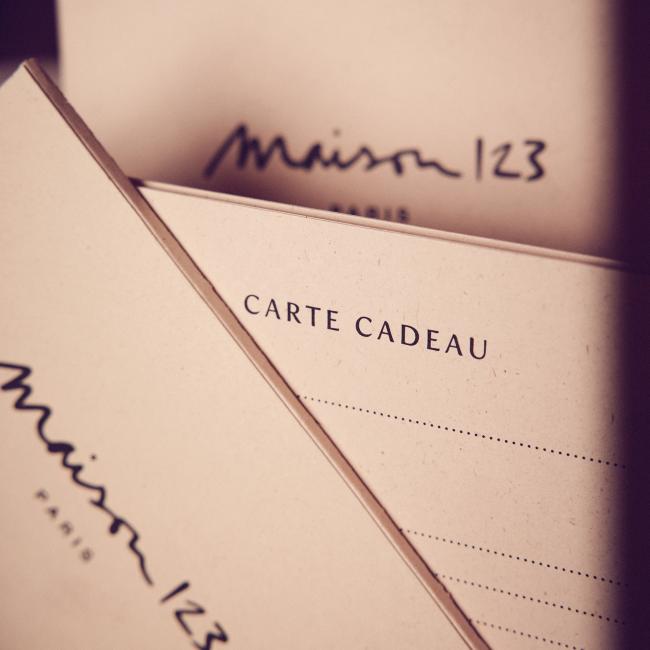 maison 123
PARIS
CARTE CADEAU
maison 123
PARIS